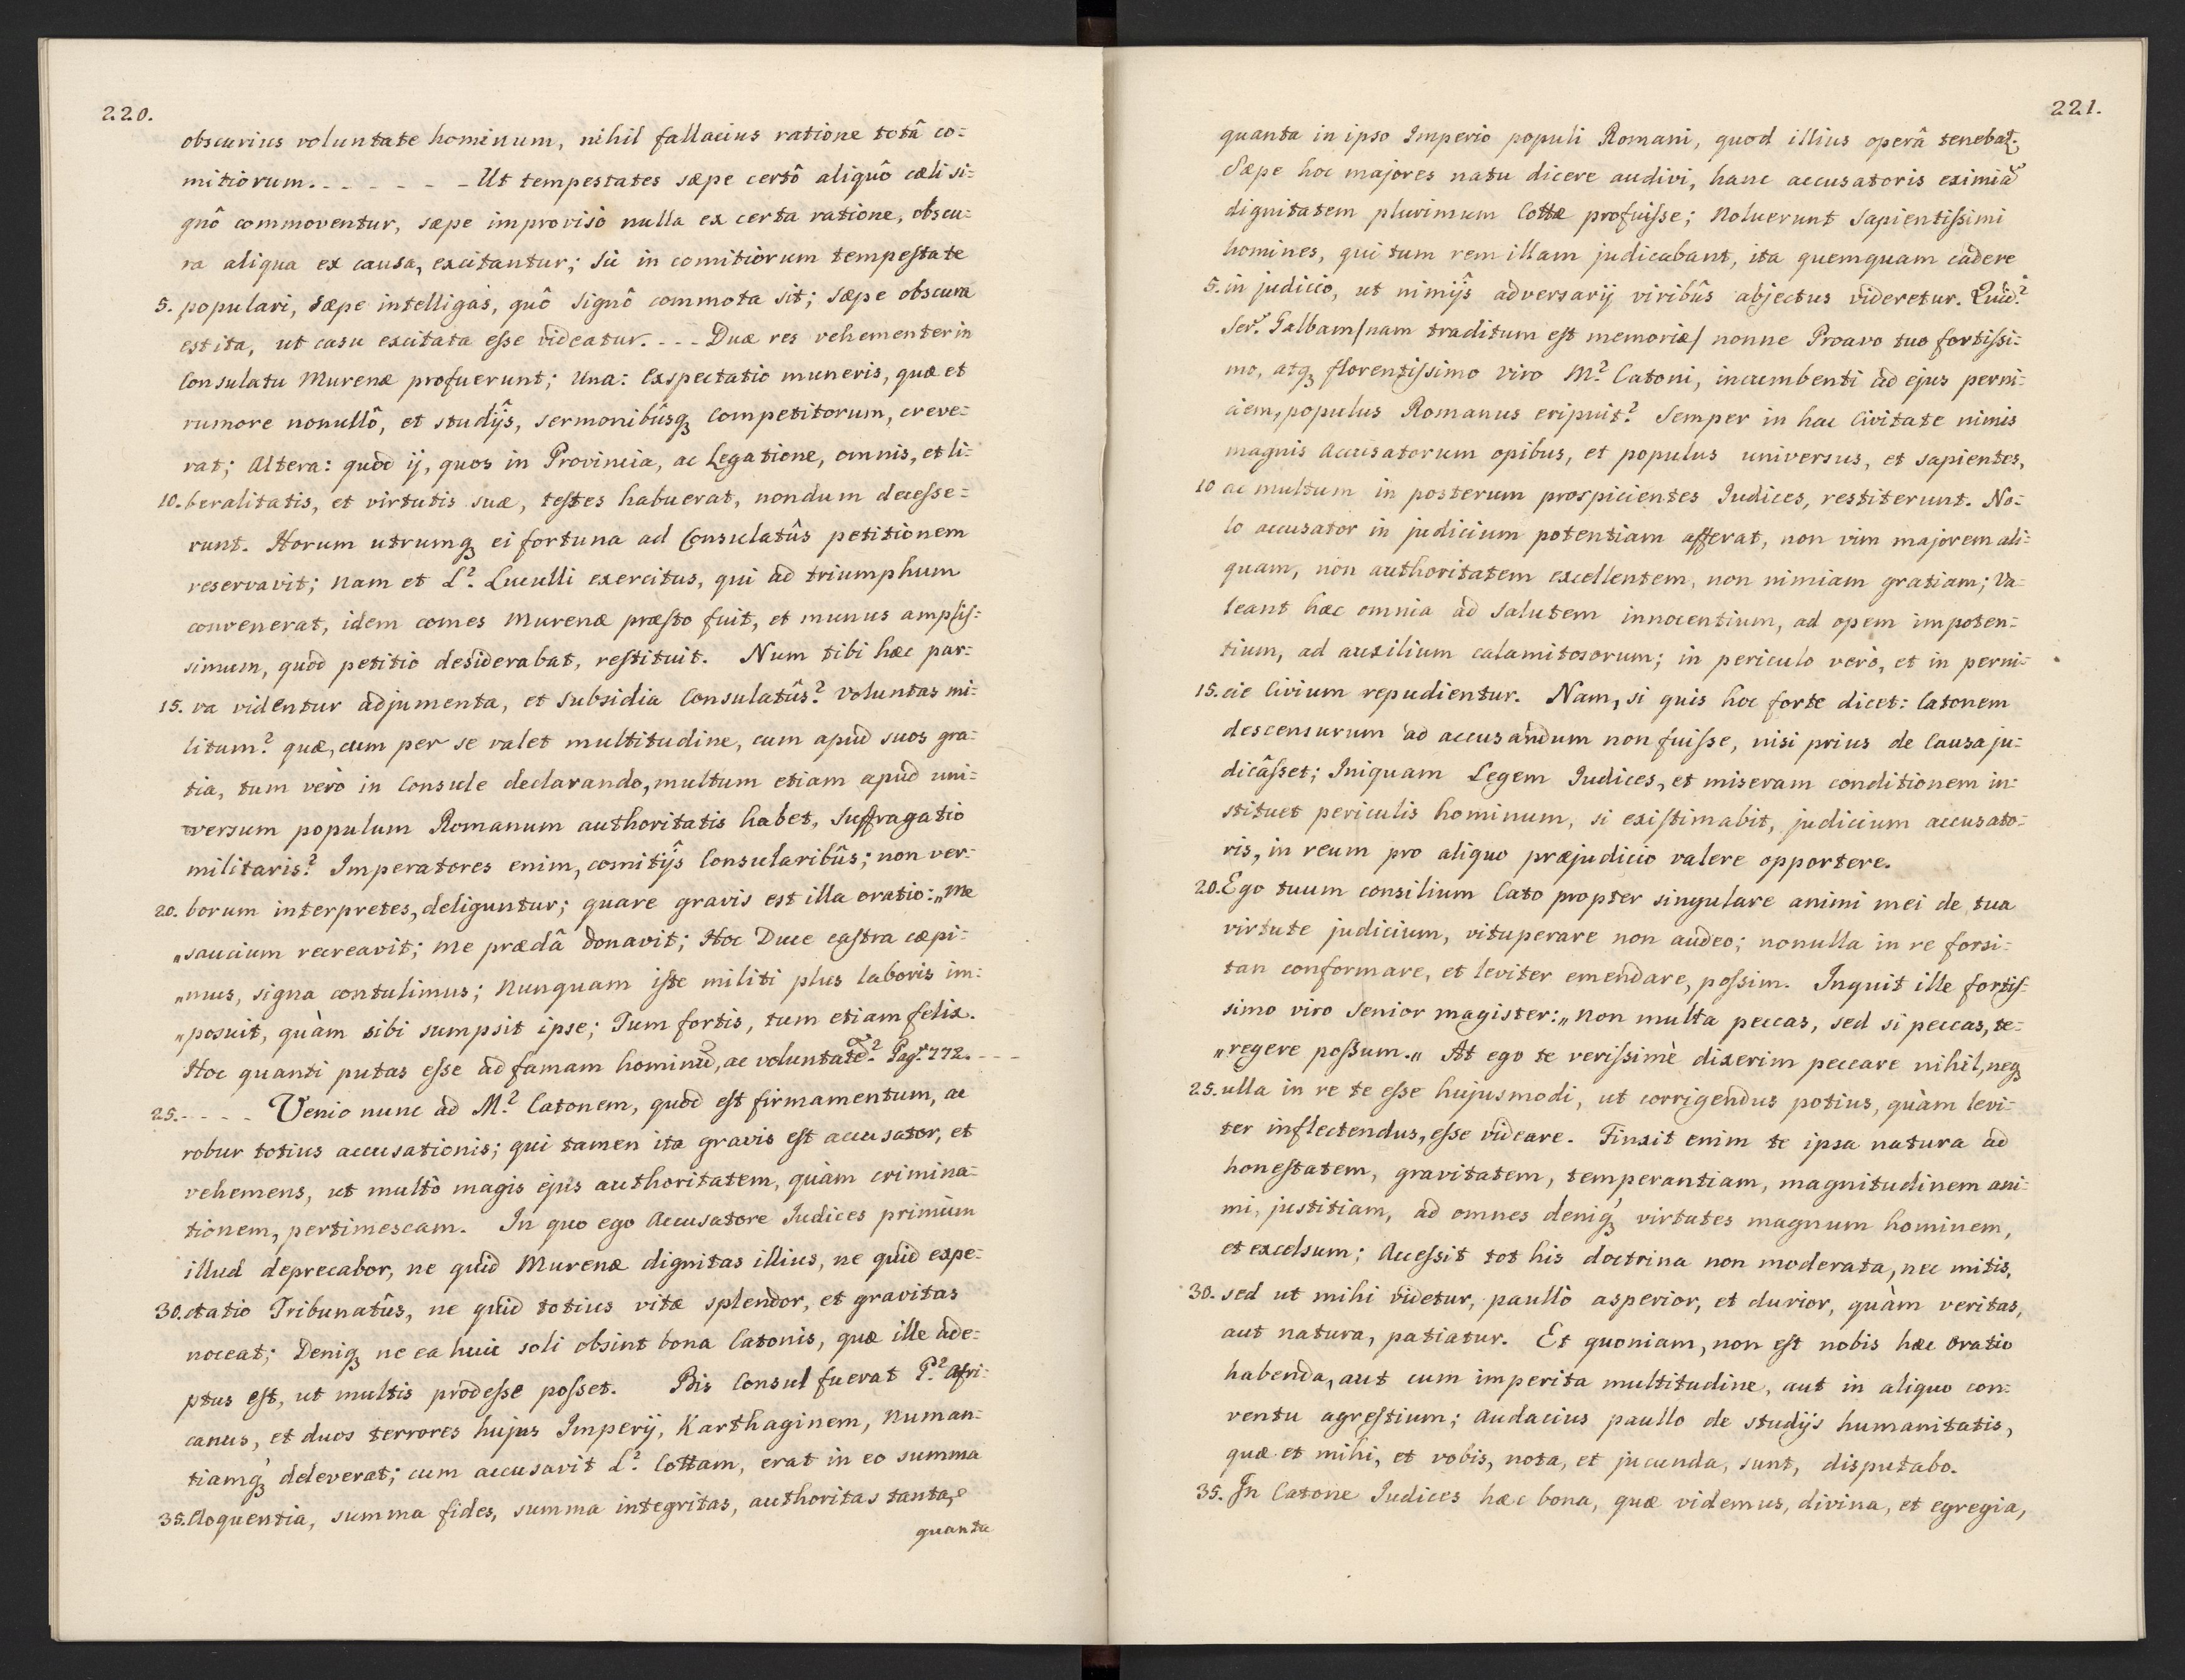 220.
obscurius voluntate hominum, nihil fallacius ratione totâ co=
mitiorum. - - - - - - Ut tempestates sæpe certô aliquô cæli si=
gnô commoventur, sæpe improvisò nulla ex certa ratione, obscu=
ra aliqua ex causa, excitantur; Sic in comitiorum tempestate
5. populari, sæpe intelligas, quô signô commota sit; sæpe obscura
est ita, ut casu excitata esse videatur. - - - Duæ res vehementer in
Consulatu Murenæ profuerunt; Una: Exspectatio muneris, quæ et
rumore nonullô, et studijs, sermonibûsq; Competitorum, creve=
rat; Altera: quòd ij, quos in Provincia, ac Legatione, omnis, et li=
10. beralitatis, et virtutis suæ, testes habuerat, nondum decesse=
runt. Horum utrumq; ei fortuna ad Consulatûs petitionem
reservavit; nam et L? Luculli exercitus, qui ad triumphum
convenerat, idem comes Murenæ præsto fuit, et munus amplis=
simum, quòd petitio desiderabat, restituit. Num tibi hæc par=
15. va videntur adjumenta, et subsidia Consulatûs? Voluntas mi=
litum? quæ, cum per se valet multitudine, cum apud suos gra=
tia, tum verò in Consule declarando, multum etiam apud uni=
versum populum Romanum authoritatis habet, Suffragatio
militaris? Imperatores enim, comitijs Consularibûs; non ver=
20. borum interpretes, deliguntur; quare gravis est illa oratio: „Me
„saucium recreavit; me prædâ donavit; Hoc Duce castra cæpi=
„mus, signa contulimus; Nunquam iste militi plus laboris im=
„posuit, quàm sibi sumpsit ipse; Tum fortis, tum etiam felix.
Hoc quanti putas esse ad famam hominũ, ac voluntatẽ? Pag. 772. - - -
25. - - - - Venio nunc ad M? Catonem, quòd est firmamentum, ac
robur totius accusationis; qui tamen ita gravis est accusator, et
vehemens, ut multò magis ejus authoritatem, quàm crimina=
tionem, pertimescam. In quo ego Accusatore Judices primùm
illud deprecabor, ne quid Murenæ dignitas illius, ne quid expe=
30. ctatio Tribunatûs, ne quid totius vitæ splendor, et gravitas
noceat; Deniq; ne ea huic soli obsint bona Catonis, quæ ille ade=
ptus est, ut multis prodesse posset. Bis Consul fuerat P? Afri=
canus, et duos terrores hujus Imperij, Karthaginem, Numan=
tiamq; deleverat; cum accusavit L? Cottam, erat in eo summa
35. Eloquentia, summa fides, summa integritas, authoritas tanta,
quanta
221.
quanta in ipso Imperio populi Romani, quod illius operâ tenebat.;
Sæpe hoc majores natu dicere audivi, hanc accusatoris eximiã
dignitatem plurimum Cottæ profuisse; Noluerunt Sapientissimi
homines, qui tum rem illam judicabant, ita quemquam cadere
5. in judicio, ut nimijs adversarij viribûs abjectus videretur. Quid?
Ser. Galbam/nam traditum est memoriæ/ nonne Proavo tuo fortissi=
mo, atq; florentissimo viro M? Catoni, incumbenti ad ejus perni=
ciem, populus Romanus eripuit? Semper in hac Civitate nimis
magnis Accusatorum opibus, et populus universus, et sapientes,
10 ac multum in posterum prospicientes Judices, restiterunt. No=
lo accusator in judicium potentiam afferat, non vim majorem ali=
quam, non authoritatem excellentem, non nimiam gratiam; Va=
leant hæc omnia ad salutem innocentium, ad opem impoten=
tium, ad auxilium calamitosorum; in periculo verò, et in perni=
15. cie Civium repudientur. Nam, si quis hoc forte dicet: Catonem
descensurum ad accusandum non fuisse, nisi prius de Causa ju=
dicâsset; Iniquam Legem Judices, et miseram conditionem in=
stituet periculis hominum, si existimabit, judicium accusato=
ris, in reum pro aliquo præjudicio valere opportere.
20. Ego tuum consilium Cato propter singulare animi mei de tua
virtute judicium, vituperare non audeo; nonulla in re forsi=
tan conformare, et leviter emendare, possim. Inquit ille fortis=
simo viro Senior magister: „Non multa peccas, sed si peccas, te=
„regere possum.„ At ego te verissimè dixerim peccare nihil, neq;
25. ulla in re te esse hujusmodi, ut corrigendus potius, quàm levi=
ter inflectendus, esse videare. Finxit enim te ipsa natura ad
honestatem, gravitatem, temperantiam, magnitudinem ani=
mi, justitiam, ad omnes deniq; virtutes magnum hominem,
et excelsum; Accessit tot his doctrina non moderata, nec mitis,
30. sed ut mihi videtur, paullò asperior, et durior, quàm veritas,
aut natura, patiatur. Et quoniam, non est nobis hæc Oratio
habenda, aut cum imperita multitudine, aut in aliquo con=
ventu agrestium; Audacius paullo de studijs humanitatis,
quæ et mihi, et vobis, nota, et jucunda, sunt, disputabo.
35. In Catone Judices hæc bona, quæ videmus, divina, et egregia,